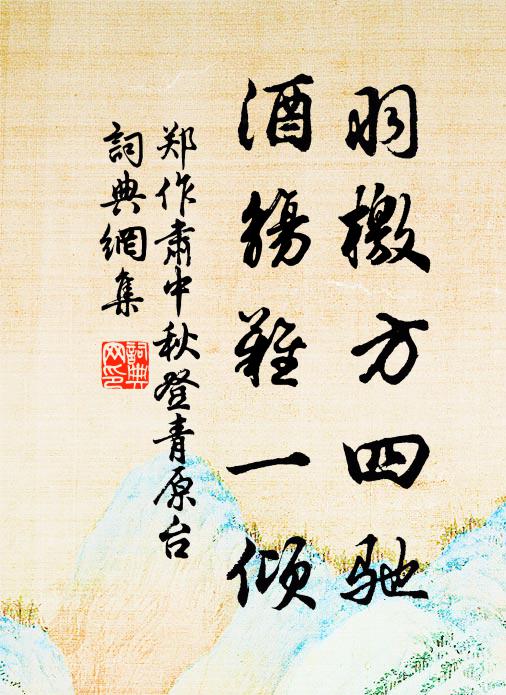 羽檄方四驰
酒觞難一倾
郑作肃中秋登青原台
詞典網集
詞典网印